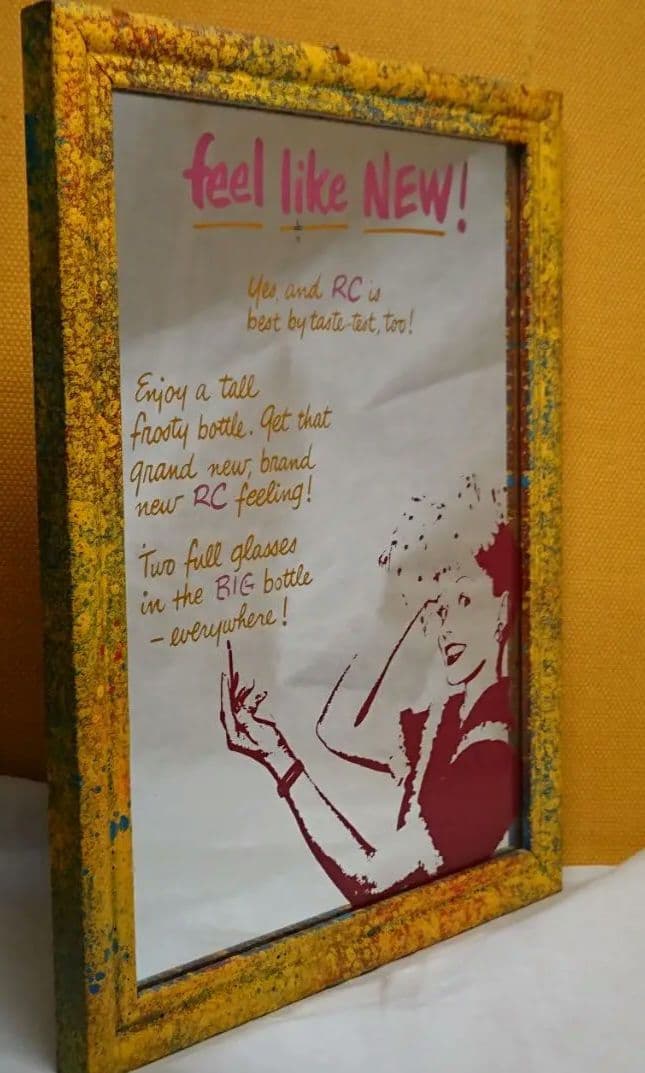 feel like NEW!
Yes, and RC is
best by taste-test, too!
Enjoy a tall
frosty bottle. Get that
grand new, brand
new RC feeling!
Two full glasses
in the BIG bottle
– everywhere!